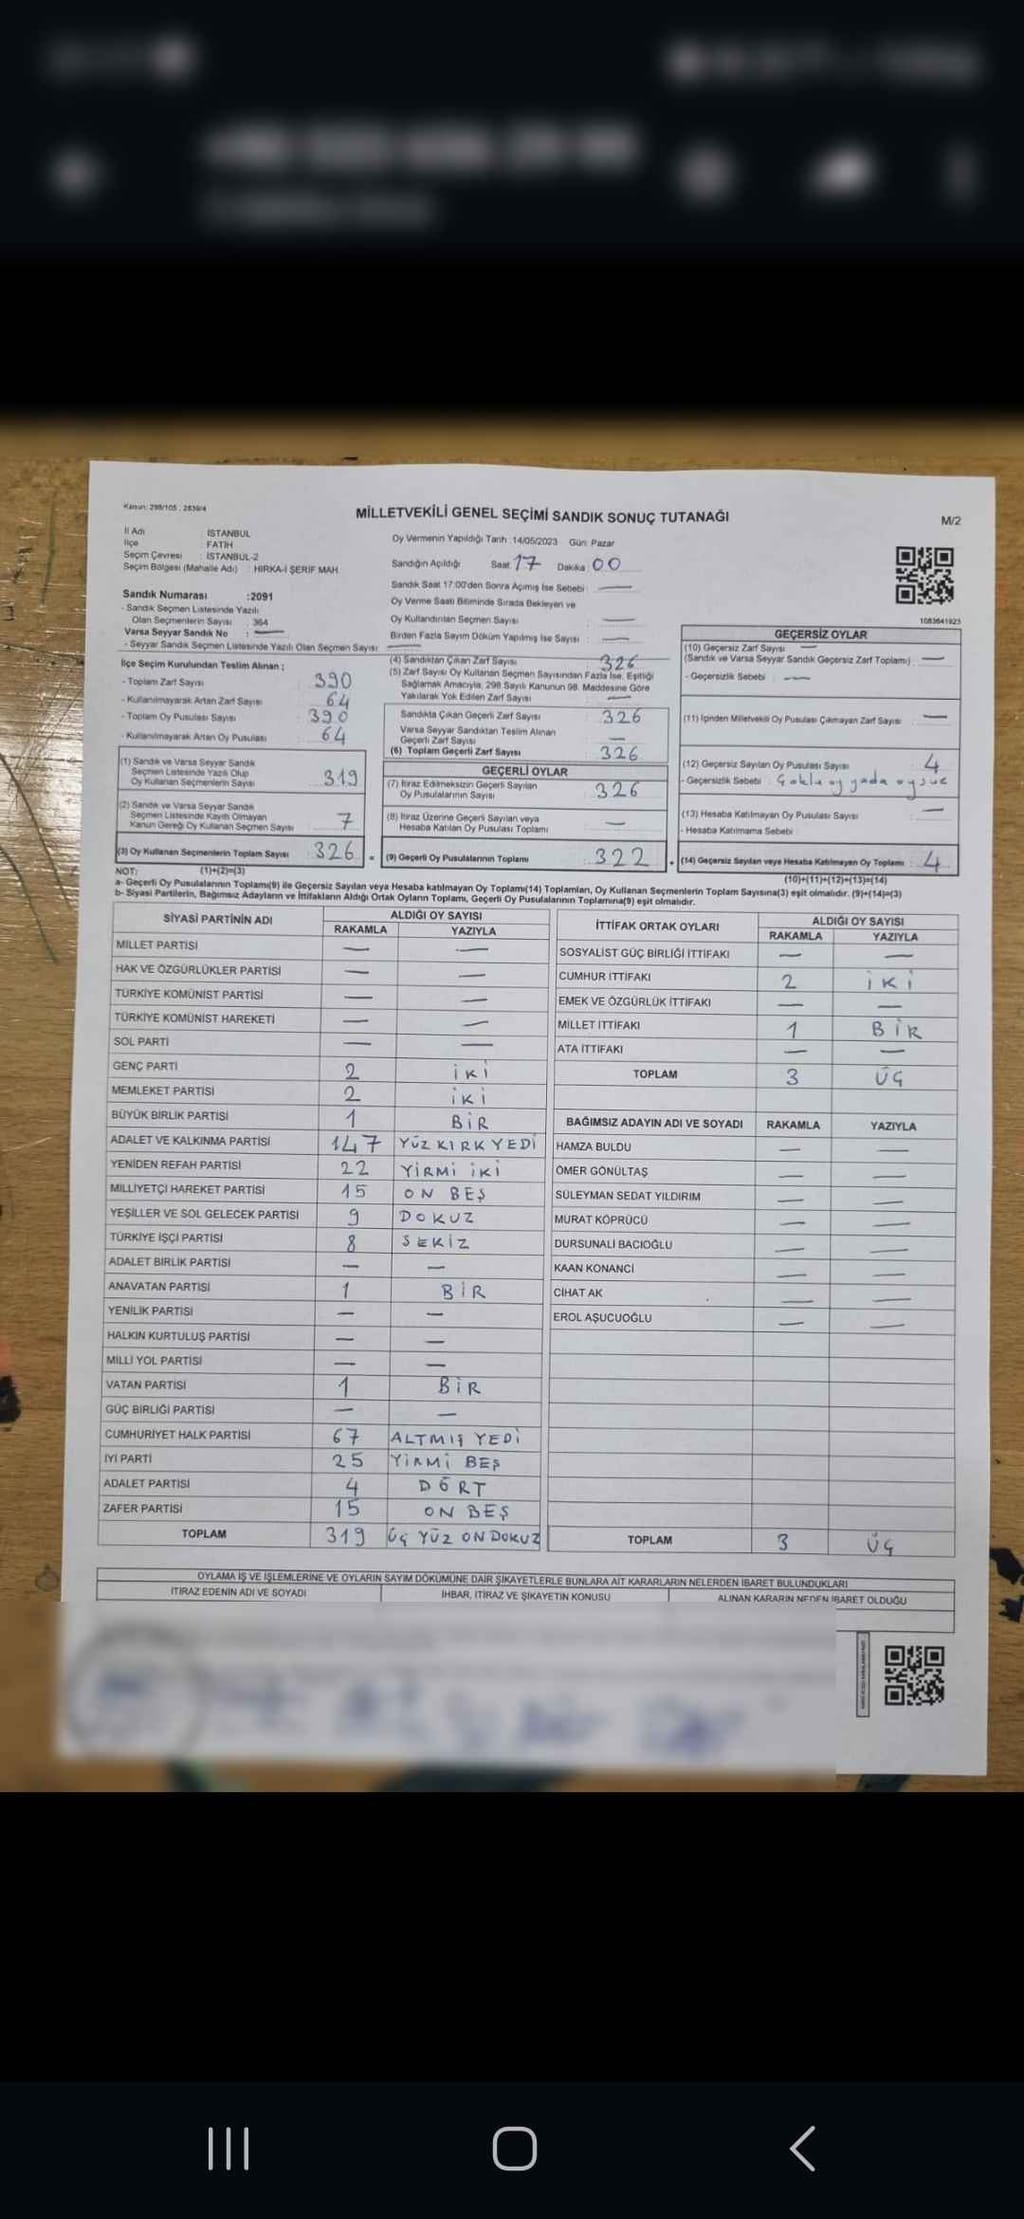 Kanun: 298/105 , 2839/4
MİLLETVEKİLİ GENEL SEÇİMİ SANDIK SONUÇ TUTANAĞI
M/2
İl Adı : İSTANBUL
İlçe : FATİH
Seçim Çevresi : İSTANBUL-2
Seçim Bölgesi (Mahalle Adı) : HIRKA-İ ŞERİF MAH
Oy Vermenin Yapıldığı Tarih :14/05/2023 Gün: Pazar
Sandığın Açıldığı Saat: 17 Dakika: 00
Sandık Saat 17:00'den Sonra Açımış İse Sebebi : —
Oy Verme Saati Bitiminde Sırada Bekleyen ve
Oy Kullandırılan Seçmen Sayısı : —
Birden Fazla Sayım Döküm Yapılmış İse Sayısı : —
1083641923
Sandık Numarası :2091
- Sandık Seçmen Listesinde Yazılı
Olan Seçmenlerin Sayısı : 364
Varsa Seyyar Sandık No : —
- Seyyar Sandık Seçmen Listesinde Yazılı Olan Seçmen Sayısı : —
İlçe Seçim Kurulundan Teslim Alınan :
- Toplam Zarf Sayısı 390
- Kullanılmayarak Artan Zarf Sayısı 64
- Toplam Oy Pusulası Sayısı 390
- Kullanılmayarak Artan Oy Pusulası 64
(1) Sandık ve Varsa Seyyar Sandık
Seçmen Listesinde Yazılı Olup
Oy Kullanan Seçmenlerin Sayısı 319
(2) Sandık ve Varsa Seyyar Sandık
Seçmen Listesinde Kayıtlı Olmayan
Kanun Gereği Oy Kullanan Seçmen Sayısı 7
(3) Oy Kullanan Seçmenlerin Toplam Sayısı 326
(1)+(2)=(3)
(4) Sandıktan Çıkan Zarf Sayısı 326
(5) Zarf Sayısı Oy Kullanan Seçmen Sayısından Fazla İse, Eşitliği
Sağlamak Amacıyla, 298 Sayılı Kanunun 98. Maddesine Göre
Yakılarak Yok Edilen Zarf Sayısı : —
Sandıkta Çıkan Geçerli Zarf Sayısı : 326
Varsa Seyyar Sandıktan Teslim Alınan
Geçerli Zarf Sayısı —
(6) Toplam Geçerli Zarf Sayısı 326
GEÇERLİ OYLAR
(7) İtiraz Edilmeksizin Geçerli Sayılan
Oy Pusulalarının Sayısı 326
(8) İtiraz Üzerine Geçerli Sayılan veya
Hesaba Katılan Oy Pusulası Toplamı —
(9) Geçerli Oy Pusulalarının Toplamı 322
GEÇERSİZ OYLAR
(10) Geçersiz Zarf Sayısı
(Sandık ve Varsa Seyyar Sandık Geçersiz Zarf Toplamı) : —
- Geçersizlik Sebebi : —
(11) İçinden Milletvekili Oy Pusulası Çıkmayan Zarf Sayısı : —
(12) Geçersiz Sayılan Oy Pusulası Sayısı 4
- Geçersizlik Sebebi : Çoklu oy yada oysuz
(13) Hesaba Katılmayan Oy Pusulası Sayısı —
- Hesaba Katılmama Sebebi
(14) Geçersiz Sayılan veya Hesaba Katılmayan Oy Toplamı : 4
(10)+(11)+(12)+(13)=(14)
NOT:
a- Geçerli Oy Pusulalarının Toplamı(9) ile Geçersiz Sayılan veya Hesaba katılmayan Oy Toplamı(14) Toplamları, Oy Kullanan Seçmenlerin Toplam Sayısına(3) eşit olmalıdır. (9)+(14)=(3)
b- Siyasi Partilerin, Bağımsız Adayların ve İttifakların Aldığı Ortak Oyların Toplamı, Geçerli Oy Pusulalarının Toplamına(9) eşit olmalıdır.
SİYASİ PARTİNİN ADI ALDIĞI OY SAYISI
RAKAMLA YAZIYLA
MİLLET PARTİSİ — —
HAK VE ÖZGÜRLÜKLER PARTİSİ — —
TÜRKİYE KOMÜNİST PARTİSİ — —
TÜRKİYE KOMÜNİST HAREKETİ — —
SOL PARTİ — —
GENÇ PARTİ 2 İKİ
MEMLEKET PARTİSİ 2 İKİ
BÜYÜK BİRLİK PARTİSİ 1 BİR
ADALET VE KALKINMA PARTİSİ 147 YÜZ KIRK YEDİ
YENİDEN REFAH PARTİSİ 22 YİRMİ İKİ
MİLLİYETÇİ HAREKET PARTİSİ 15 ON BEŞ
YEŞİLLER VE SOL GELECEK PARTİSİ 9 DOKUZ
TÜRKİYE İŞÇİ PARTİSİ 8 SEKİZ
ADALET BİRLİK PARTİSİ — —
ANAVATAN PARTİSİ 1 BİR
YENİLİK PARTİSİ — —
HALKIN KURTULUŞ PARTİSİ — —
MİLLİ YOL PARTİSİ — —
VATAN PARTİSİ 1 BİR
GÜÇ BİRLİĞİ PARTİSİ — —
CUMHURİYET HALK PARTİSİ 67 ALTMIŞ YEDİ
İYİ PARTİ 25 YİRMİ BEŞ
ADALET PARTİSİ 4 DÖRT
ZAFER PARTİSİ 15 ON BEŞ
TOPLAM 319 ÜÇ YÜZ ON DOKUZ
İTTİFAK ORTAK OYLARI ALDIĞI OY SAYISI
RAKAMLA YAZIYLA
SOSYALİST GÜÇ BİRLİĞİ İTTİFAKI — —
CUMHUR İTTİFAKI 2 İKİ
EMEK VE ÖZGÜRLÜK İTTİFAKI — —
MİLLET İTTİFAKI 1 BİR
ATA İTTİFAKI — —
TOPLAM 3 ÜÇ
BAĞIMSIZ ADAYIN ADI VE SOYADI RAKAMLA YAZIYLA
HAMZA BULDU — —
ÖMER GÖNÜLTAŞ — —
SÜLEYMAN SEDAT YILDIRIM — —
MURAT KÖPRÜCÜ — —
DURSUNALİ BACIOĞLU — —
KAAN KONANCİ — —
CİHAT AK — —
EROL AŞUCUOĞLU — —
TOPLAM 3 ÜÇ
OYLAMA İŞ VE İŞLEMLERİNE VE OYLARIN SAYIM DÖKÜMÜNE DAİR ŞİKAYETLERLE BUNLARA AİT KARARLARIN NELERDEN İBARET BULUNDUKLARI
İTİRAZ EDENİN ADI VE SOYADI İHBAR, İTİRAZ VE ŞİKAYETİN KONUSU ALINAN KARARIN NEDEN İBARET OLDUĞU